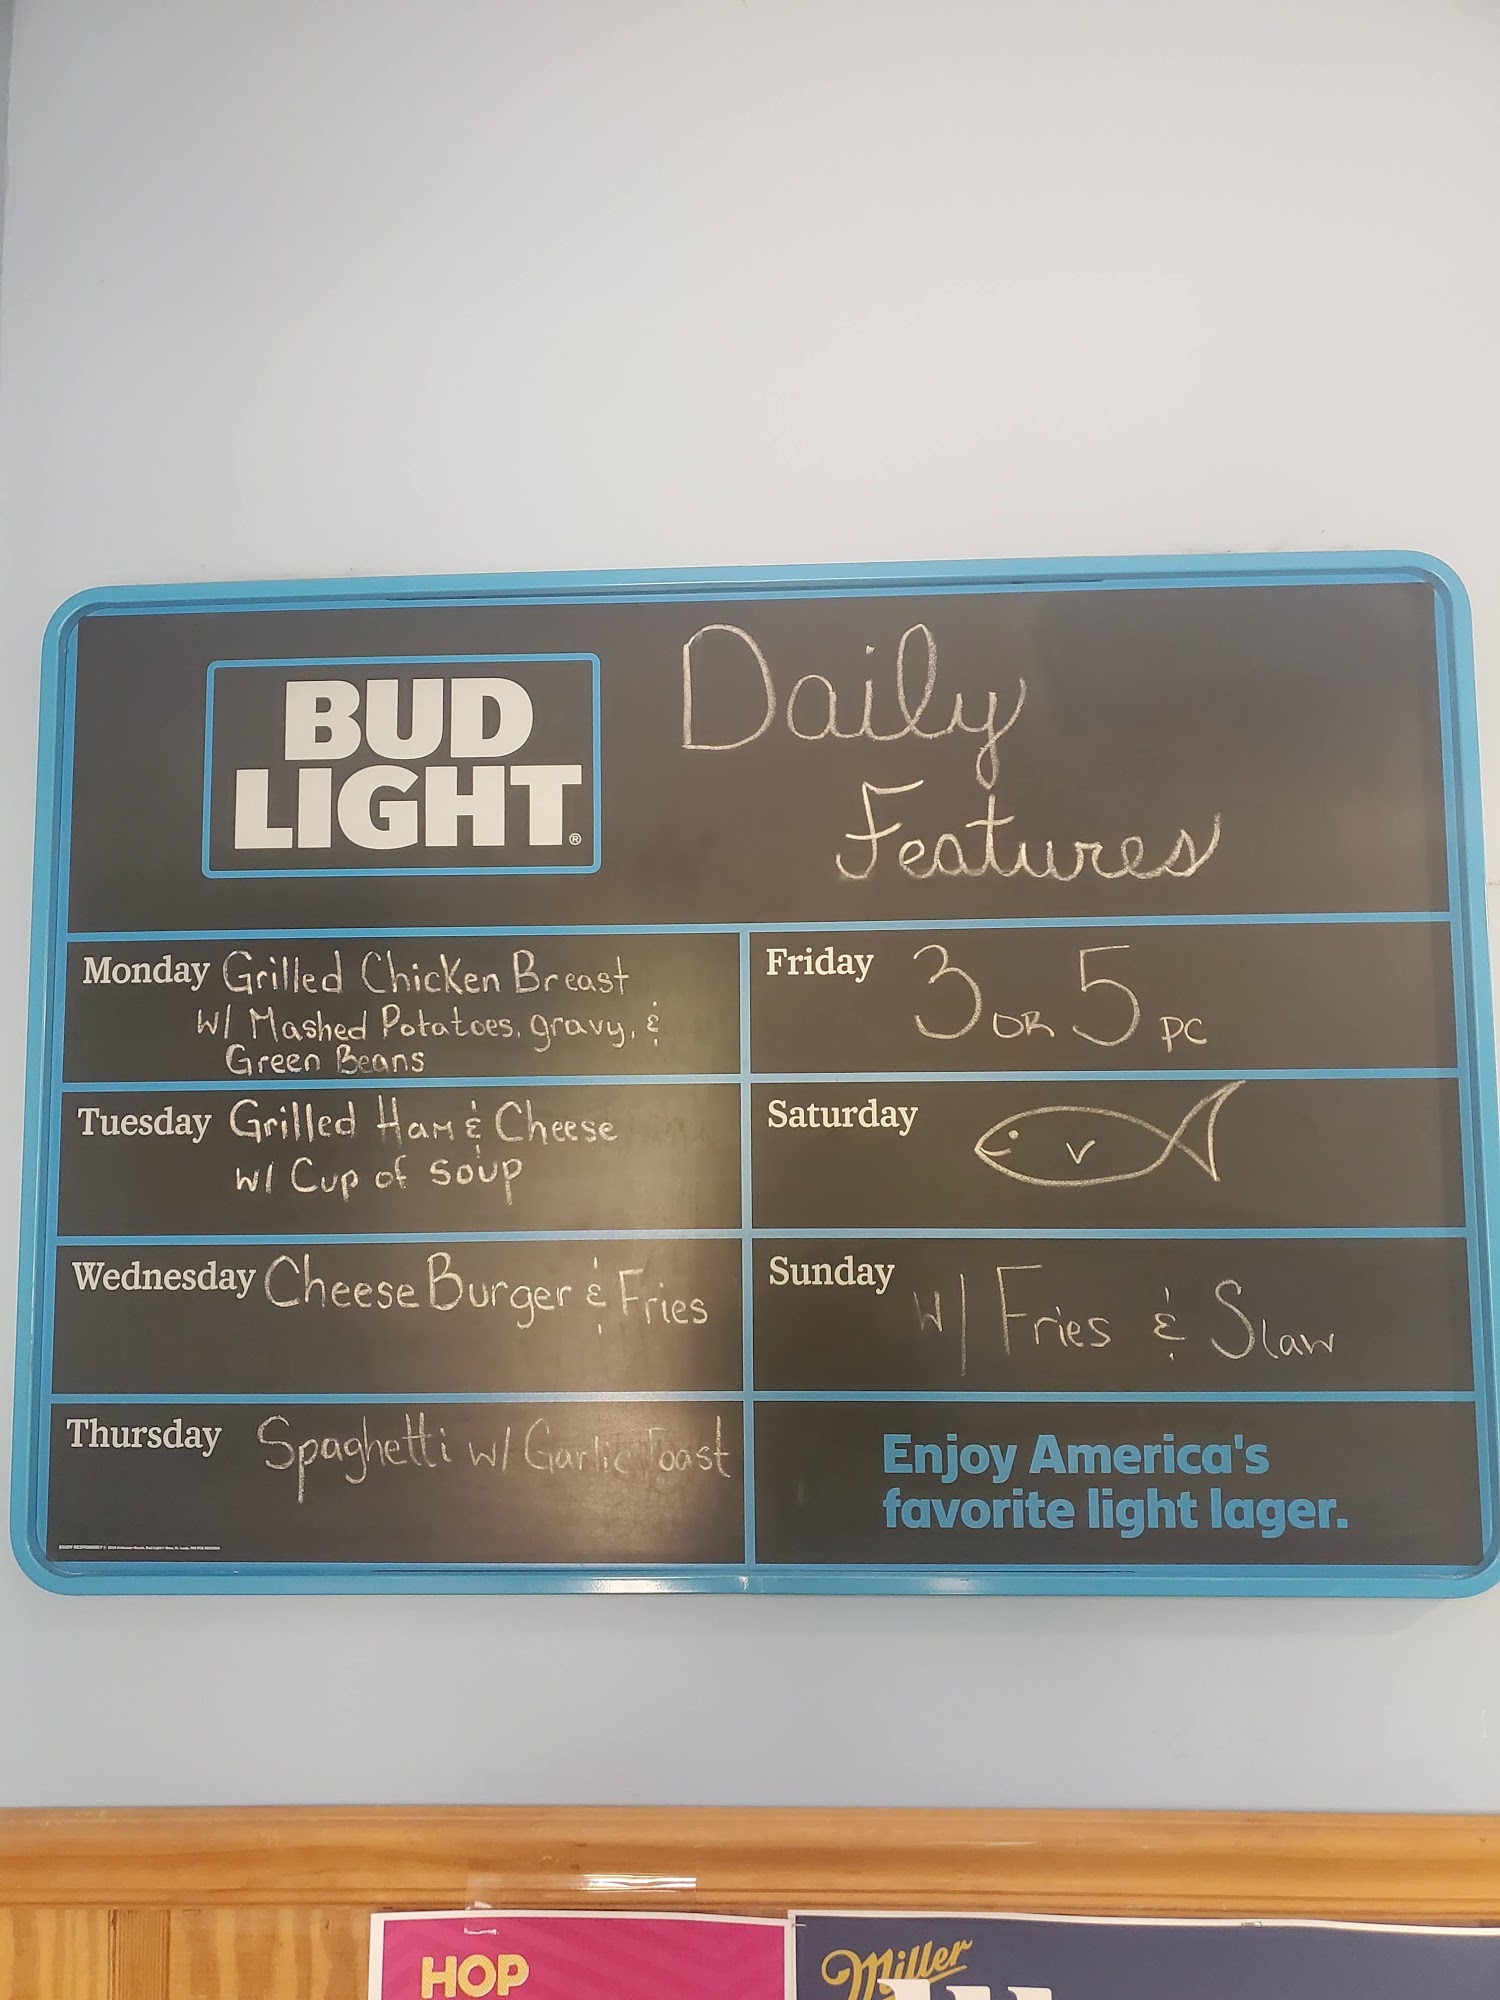 BUD
LIGHT®
Daily
Features
Monday Grilled Chicken Breast
w/ Mashed Potatoes, gravy, &
Green Beans
Tuesday Grilled Ham & Cheese
w/ Cup of Soup
Wednesday Cheese Burger & Fries
Thursday Spaghetti w/ Garlic Toast
Friday 3 OR 5 PC
Saturday
Sunday w/ Fries & Slaw
Enjoy America's
favorite light lager.
HOP
Miller